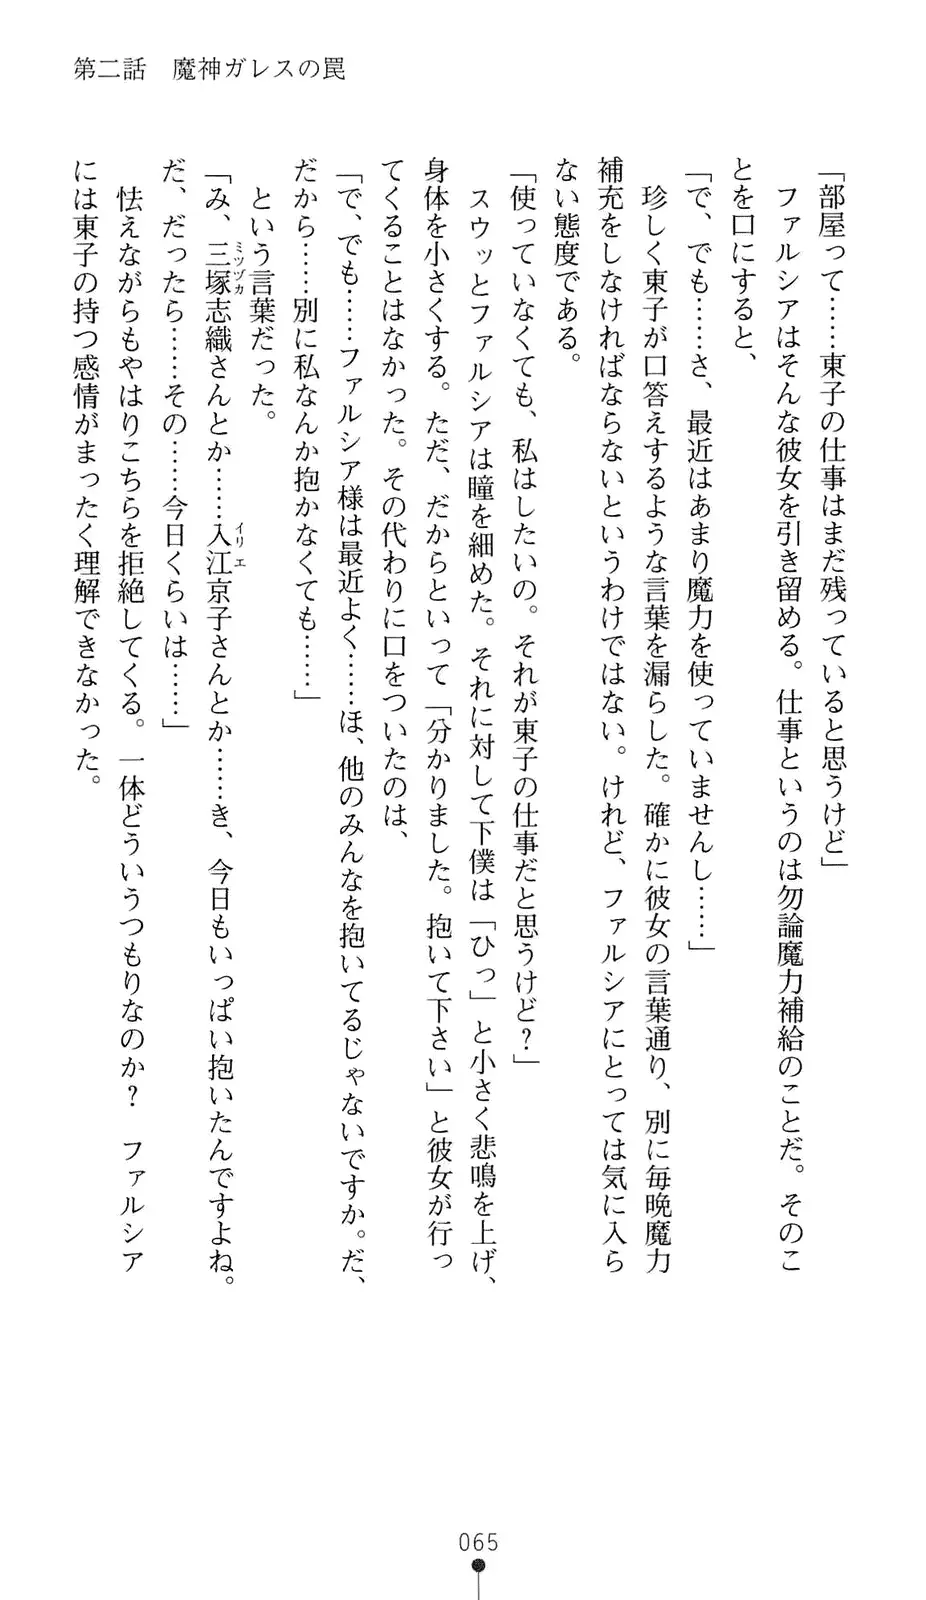 第二話　魔神ガレスの罠
「部屋って……東子の仕事はまだ残っていると思うけど」
　ファルシアはそんな彼女を引き留める。仕事というのは勿論魔力補給のことだ。そのこ
とを口にすると、
「で、でも……さ、最近はあまり魔力を使っていませんし……」
　珍しく東子が口答えするような言葉を漏らした。確かに彼女の言葉通り、別に毎晩魔力
補充をしなければならないというわけではない。けれど、ファルシアにとっては気に入ら
ない態度である。
「使っていなくても、私はしたいの。それが東子の仕事だと思うけど？」
　スウッとファルシアは瞳を細めた。それに対して下僕は「ひっ」と小さく悲鳴を上げ、
身体を小さくする。ただ、だからといって「分かりました。抱いて下さい」と彼女が行っ
てくることはなかった。その代わりに口をついたのは、
「で、でも……ファルシア様は最近よく……ほ、他のみんなを抱いてるじゃないですか。だ、
だから……別に私なんか抱かなくても……」
　という言葉だった。
「み、三塚志織さんとか……入江京子さんとか……き、今日もいっぱい抱いたんですよね。
だ、だったら……その……今日くらいは……」
　怯えながらもやはりこちらを拒絶してくる。一体どういうつもりなのか？　ファルシア
には東子の持つ感情がまったく理解できなかった。
ミツヅカ
イリエ
065